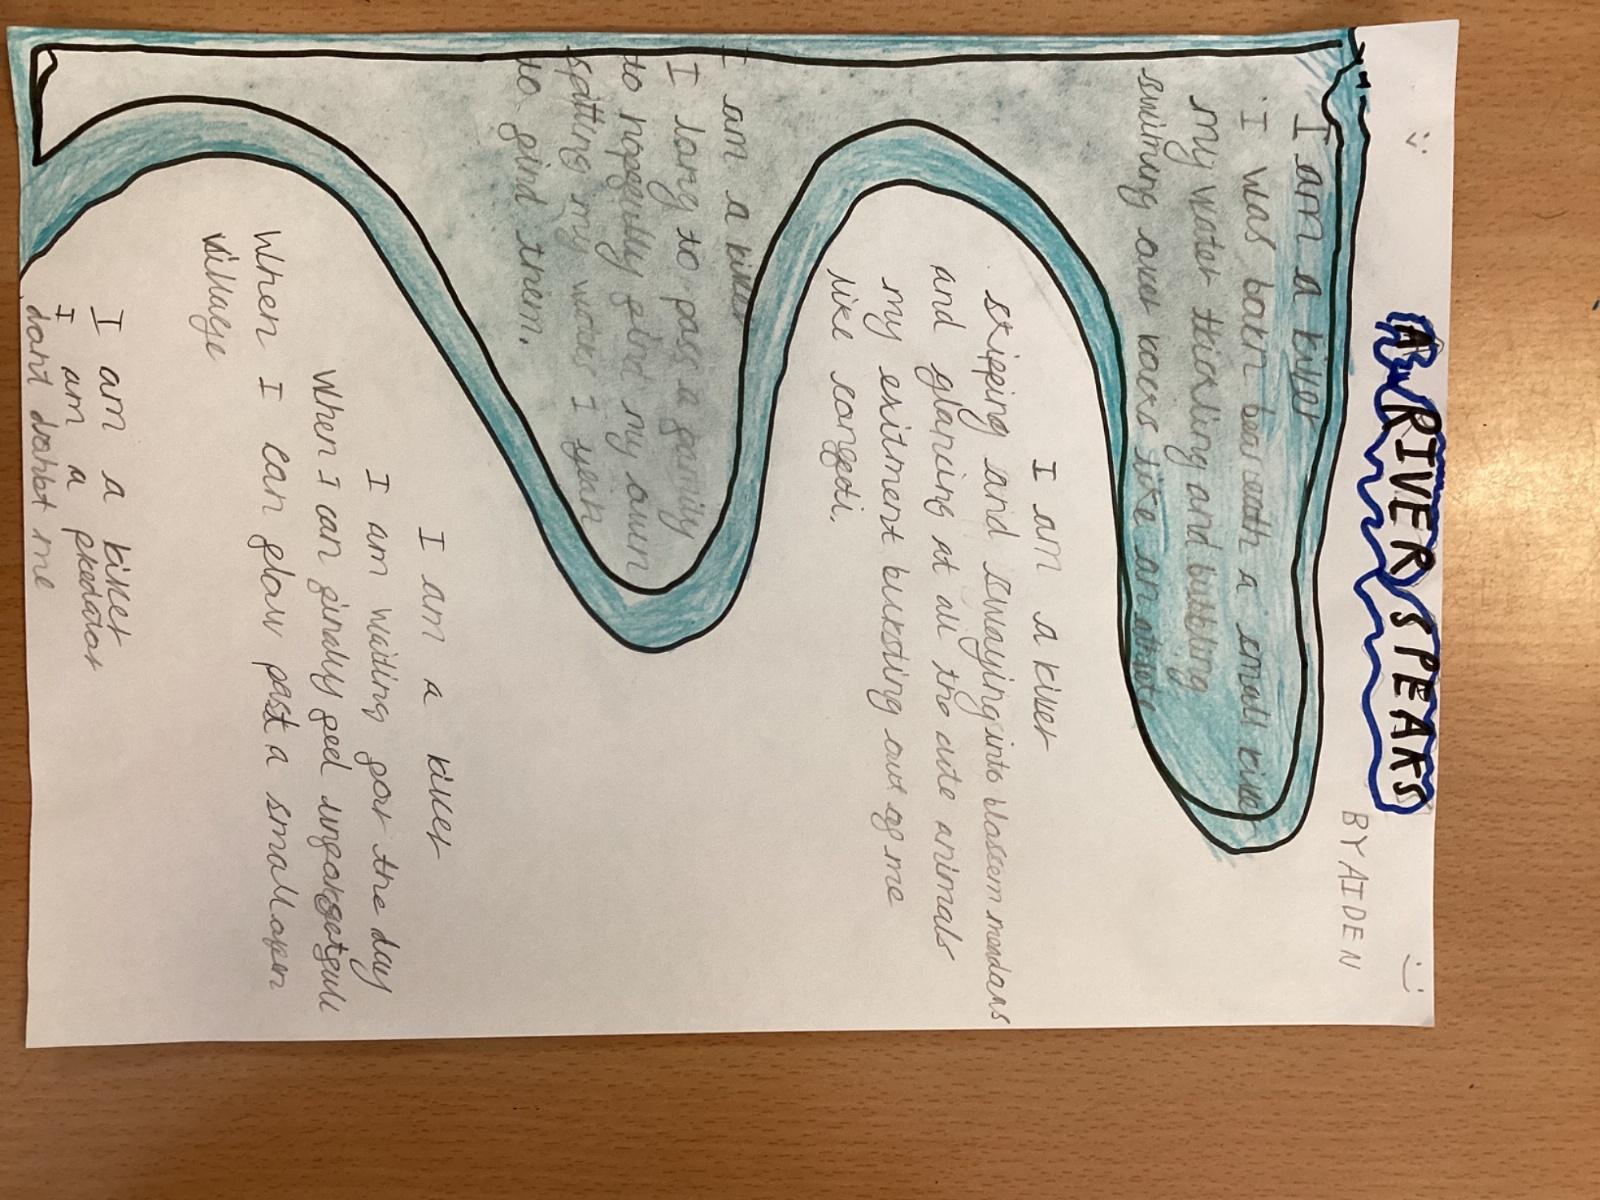 A RIVER SPEAKS
BY AIDEN
I am a river
I was born beneath a small river
my water trickling and bubbling
swiming over rocks like an
I am a river
skipping and swaying into blossem
and glancing at all the cute animals
my exitment bursting out of me
like
I am a river
I long to pass a family
to hopefully find my own
my I
to find them.
I am a river
I am waiting for the day
When I can finally feel
When I can flow past a small open
village
I am a river
I am a predator
dont me